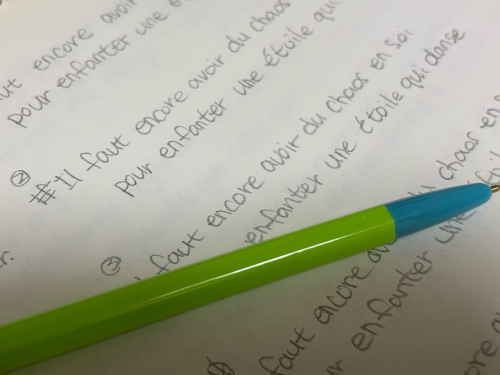 aut encore avoir
pour enfanter une é
②
#Il faut encore avoir du chaos
pour enfanter une étoile qui
r.
③
faut encore avoir du chaos en soi
enfanter une étoile qui danse
faut encore av du chaos en
ur enfanter une
core a